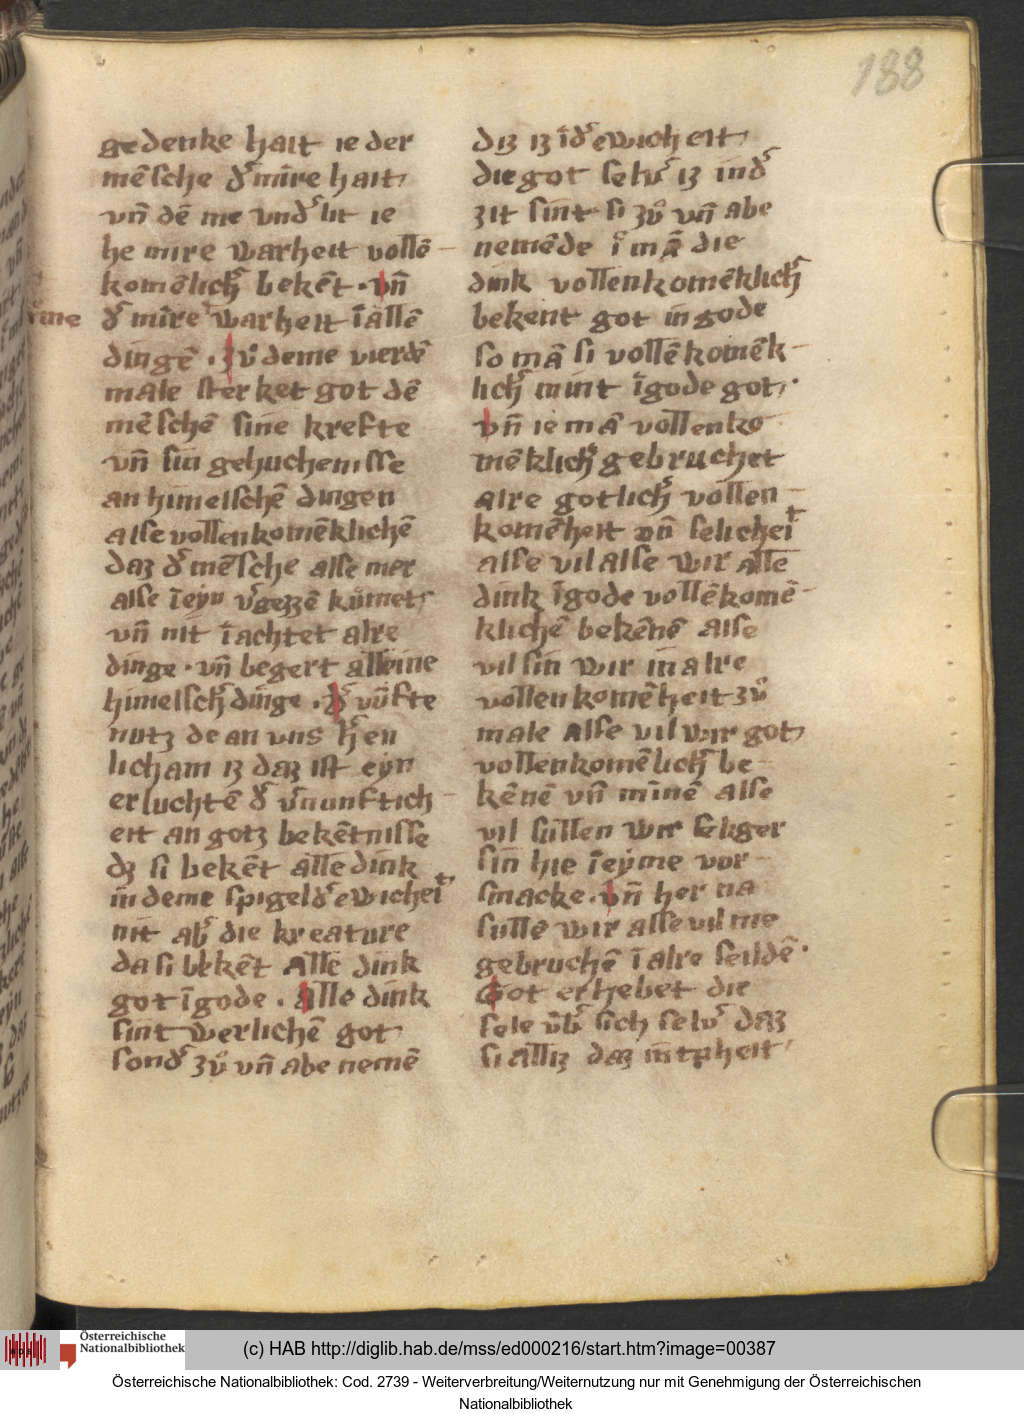 188
gedenke hait ie der
mēsche dˀ mīre hait
vn̄ dē me vndˀ lit ie
he mire warheit vollē-
komēlichˀ bekēt · vn̄
dˀ mīre warheit ī allē
dingē · zů deme vierdē
male sterket got dē
mēschē sine krefte
vn̄ sin gehuchenisse
an himelschē dingen
alse vollenkomēklichē
daz dˀ mēsche alse mer
alse īeyn vˀgezzē kůmet
vn̄ nit ī achtet alre
dinge · vn̄ begert alleine
himelschˀ dinge · dˀ vůfte
nutz de an vns hˀen
licham iz daz ist eyn
erluchtē dˀ vˀnunftich-
eit an gotz bekētnisse
dz si bekēt alle dink
in deme spigel dˀ ewicheit
nit abˀ die kreature
da si bekēt Alle dink
got ī gode · alle dink
sint werlichē got
sondˀ zů vn̄ abe nemē
diz iz ī dˀ ewicheit
die got selvˀ iz in dˀ
zit sint si zů vn̄ abe
nemēde iˀ mā die
dink vollenkomēklichˀ
bekent got in gode
so mā si vollēkomēk-
lichˀ mint ī gode got ·
vn̄ ie mā vollenko
mēklichˀ gebruchet
alre gotlichˀ vollen-
komēheit vn̄ selicheit
alse vil alse wir alle
dink ī gode vollēkomē-
klichē bekēnē alse
vil sin wir in alre
vollenkomēheit zů
male Alse vil wir got
vollenkomēlichˀ be-
kēnē vn̄ minnē alse
vil sullen wir sekger
sin hie ī eyme vor-
smacke · vn̄ her na
sullē wir alse vil me
gebruchē ī alre seildē ·
Got erhebet die
sele v̄bˀ sich selvˀ daz
si alliz daz mitpheit
(c) HAB http://diglib.hab.de/mss/ed000216/start.htm?image=00387
Österreichische
Nationalbibliothek
Österreichische Nationalbibliothek: Cod. 2739 - Weiterverbreitung/Weiternutzung nur mit Genehmigung der Österreichischen
Nationalbibliothek